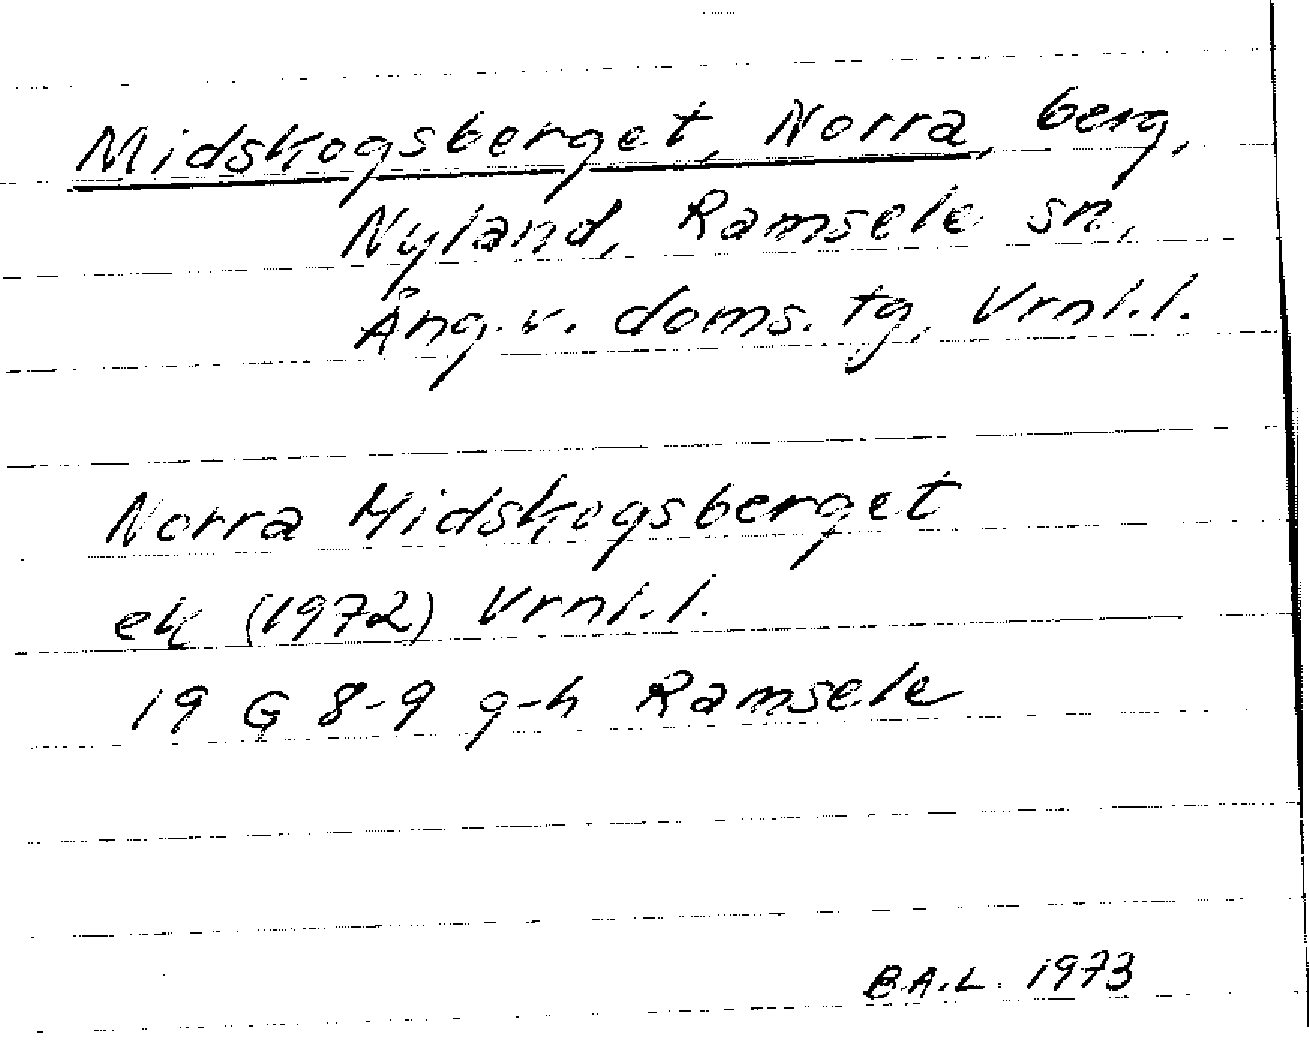 Midskogsberget, Norra, berg,
Nyland, Ramsele sn,
Ång.v. doms. tg, Vrnl.l.
Norra Midskogsberget
ek (1972) Vrnl.l.
19 G 8-9 g-h Ramsele
B.A.L. 1973